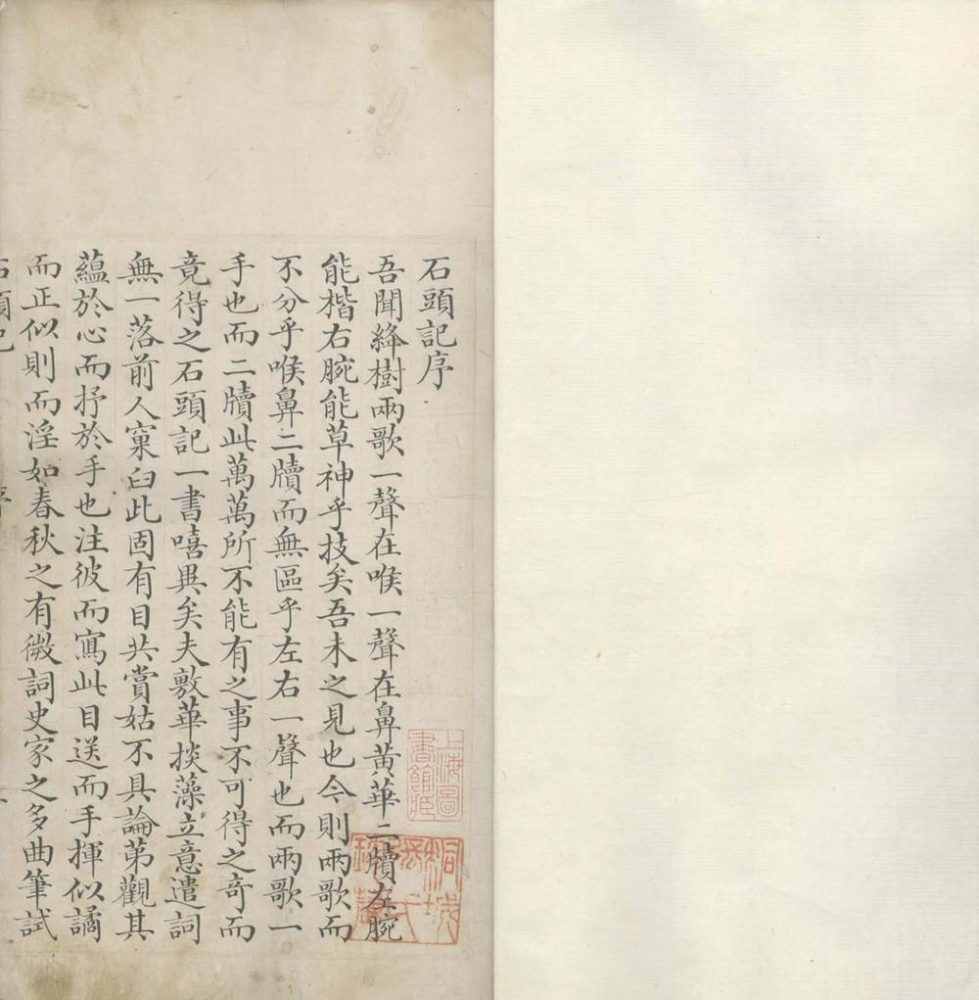 石頭記序
吾聞絳樹兩歌一聲在喉一聲在鼻黃華二牘左腕
能楷右腕能草神乎技矣吾未之見也今則兩歌而
不分乎喉鼻二牘而無區乎左右一聲也而兩歌一
手也而二牘此萬萬所不能有之事不可得之奇而
竟得之石頭記一書嘻異矣夫敷華掞藻立意遣詞
無一落前人窠臼此固有目共賞姑不具論第觀其
蘊於心而抒於手也注彼而寫此目送而手揮似譎
而正似則而淫如春秋之有微詞史家之多曲筆試
石頭記
上海圖
書館藏
桐城
氏